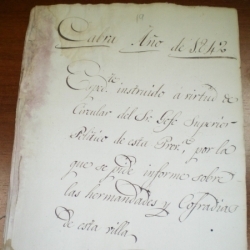 Cabra Año de 1842
Expte. instruido a virtud de
Circular del Sr. Jefe Superior
Político de esta Prova. por la
que se pide informe sobre
las hermandades y Cofradias
de esta villa